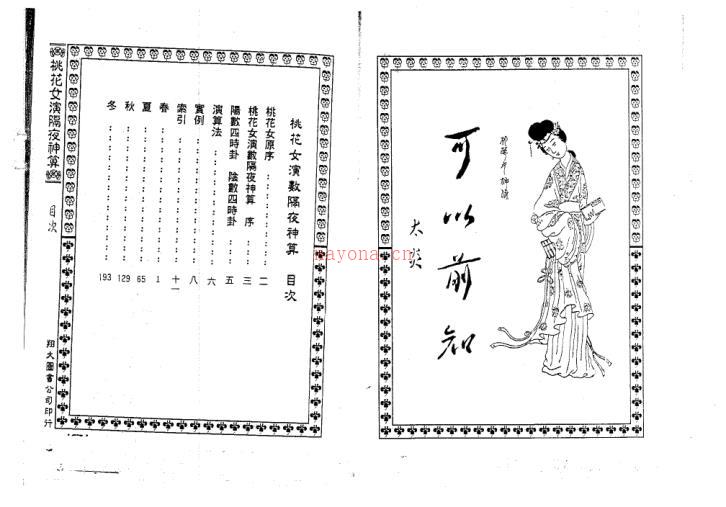 可以前知
太炎
桃花女演數隔夜神算 目次
桃花女原序 二
桃花女演數隔夜神算 序 三
陽數四時卦 陰數四時卦 五
演算法 六
實例 八
索引 十一
春 1
夏 65
秋 129
冬 193
桃花女演隔夜神算
目次
翔大圖書公司印行
nayona.cn